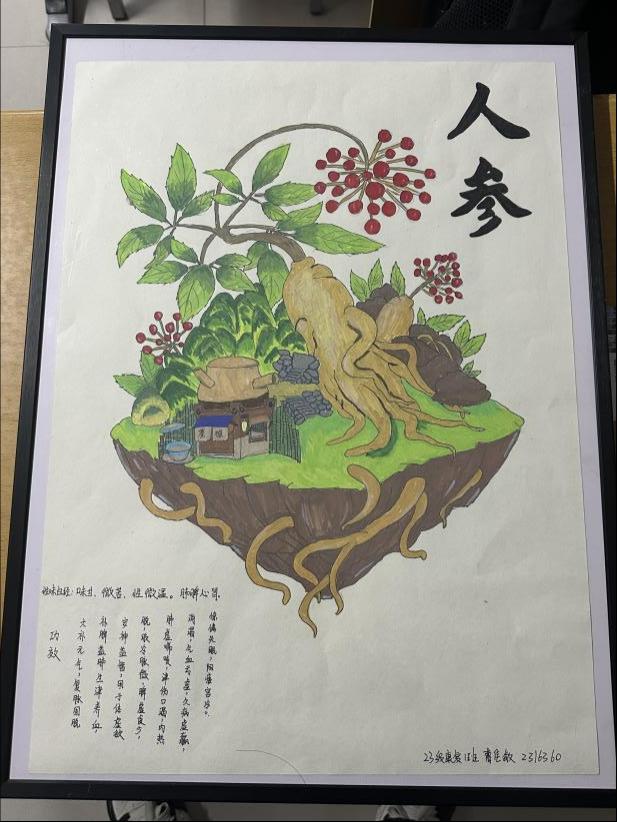 人参
性味归经：味甘、微苦、性微温。肺脾心肾。
功效
大补元气，复脉固脱
补脾益肺，生津养血，
安神益智，用于体虚欲
脱，肢冷脉微，脾虚食少，
肺虚喘咳，津伤口渴，内热
消渴，气血亏虚，久病虚羸，
惊悸失眠，阳痿宫冷。
23级康复 2316360